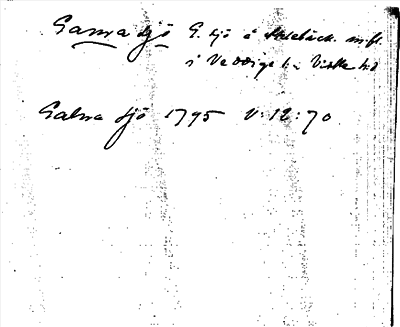 Gamra sjö G. sjö å Stebäck. m.fl.
i Veddige s. Viske hd
Galna sjö 1795 V:12:70